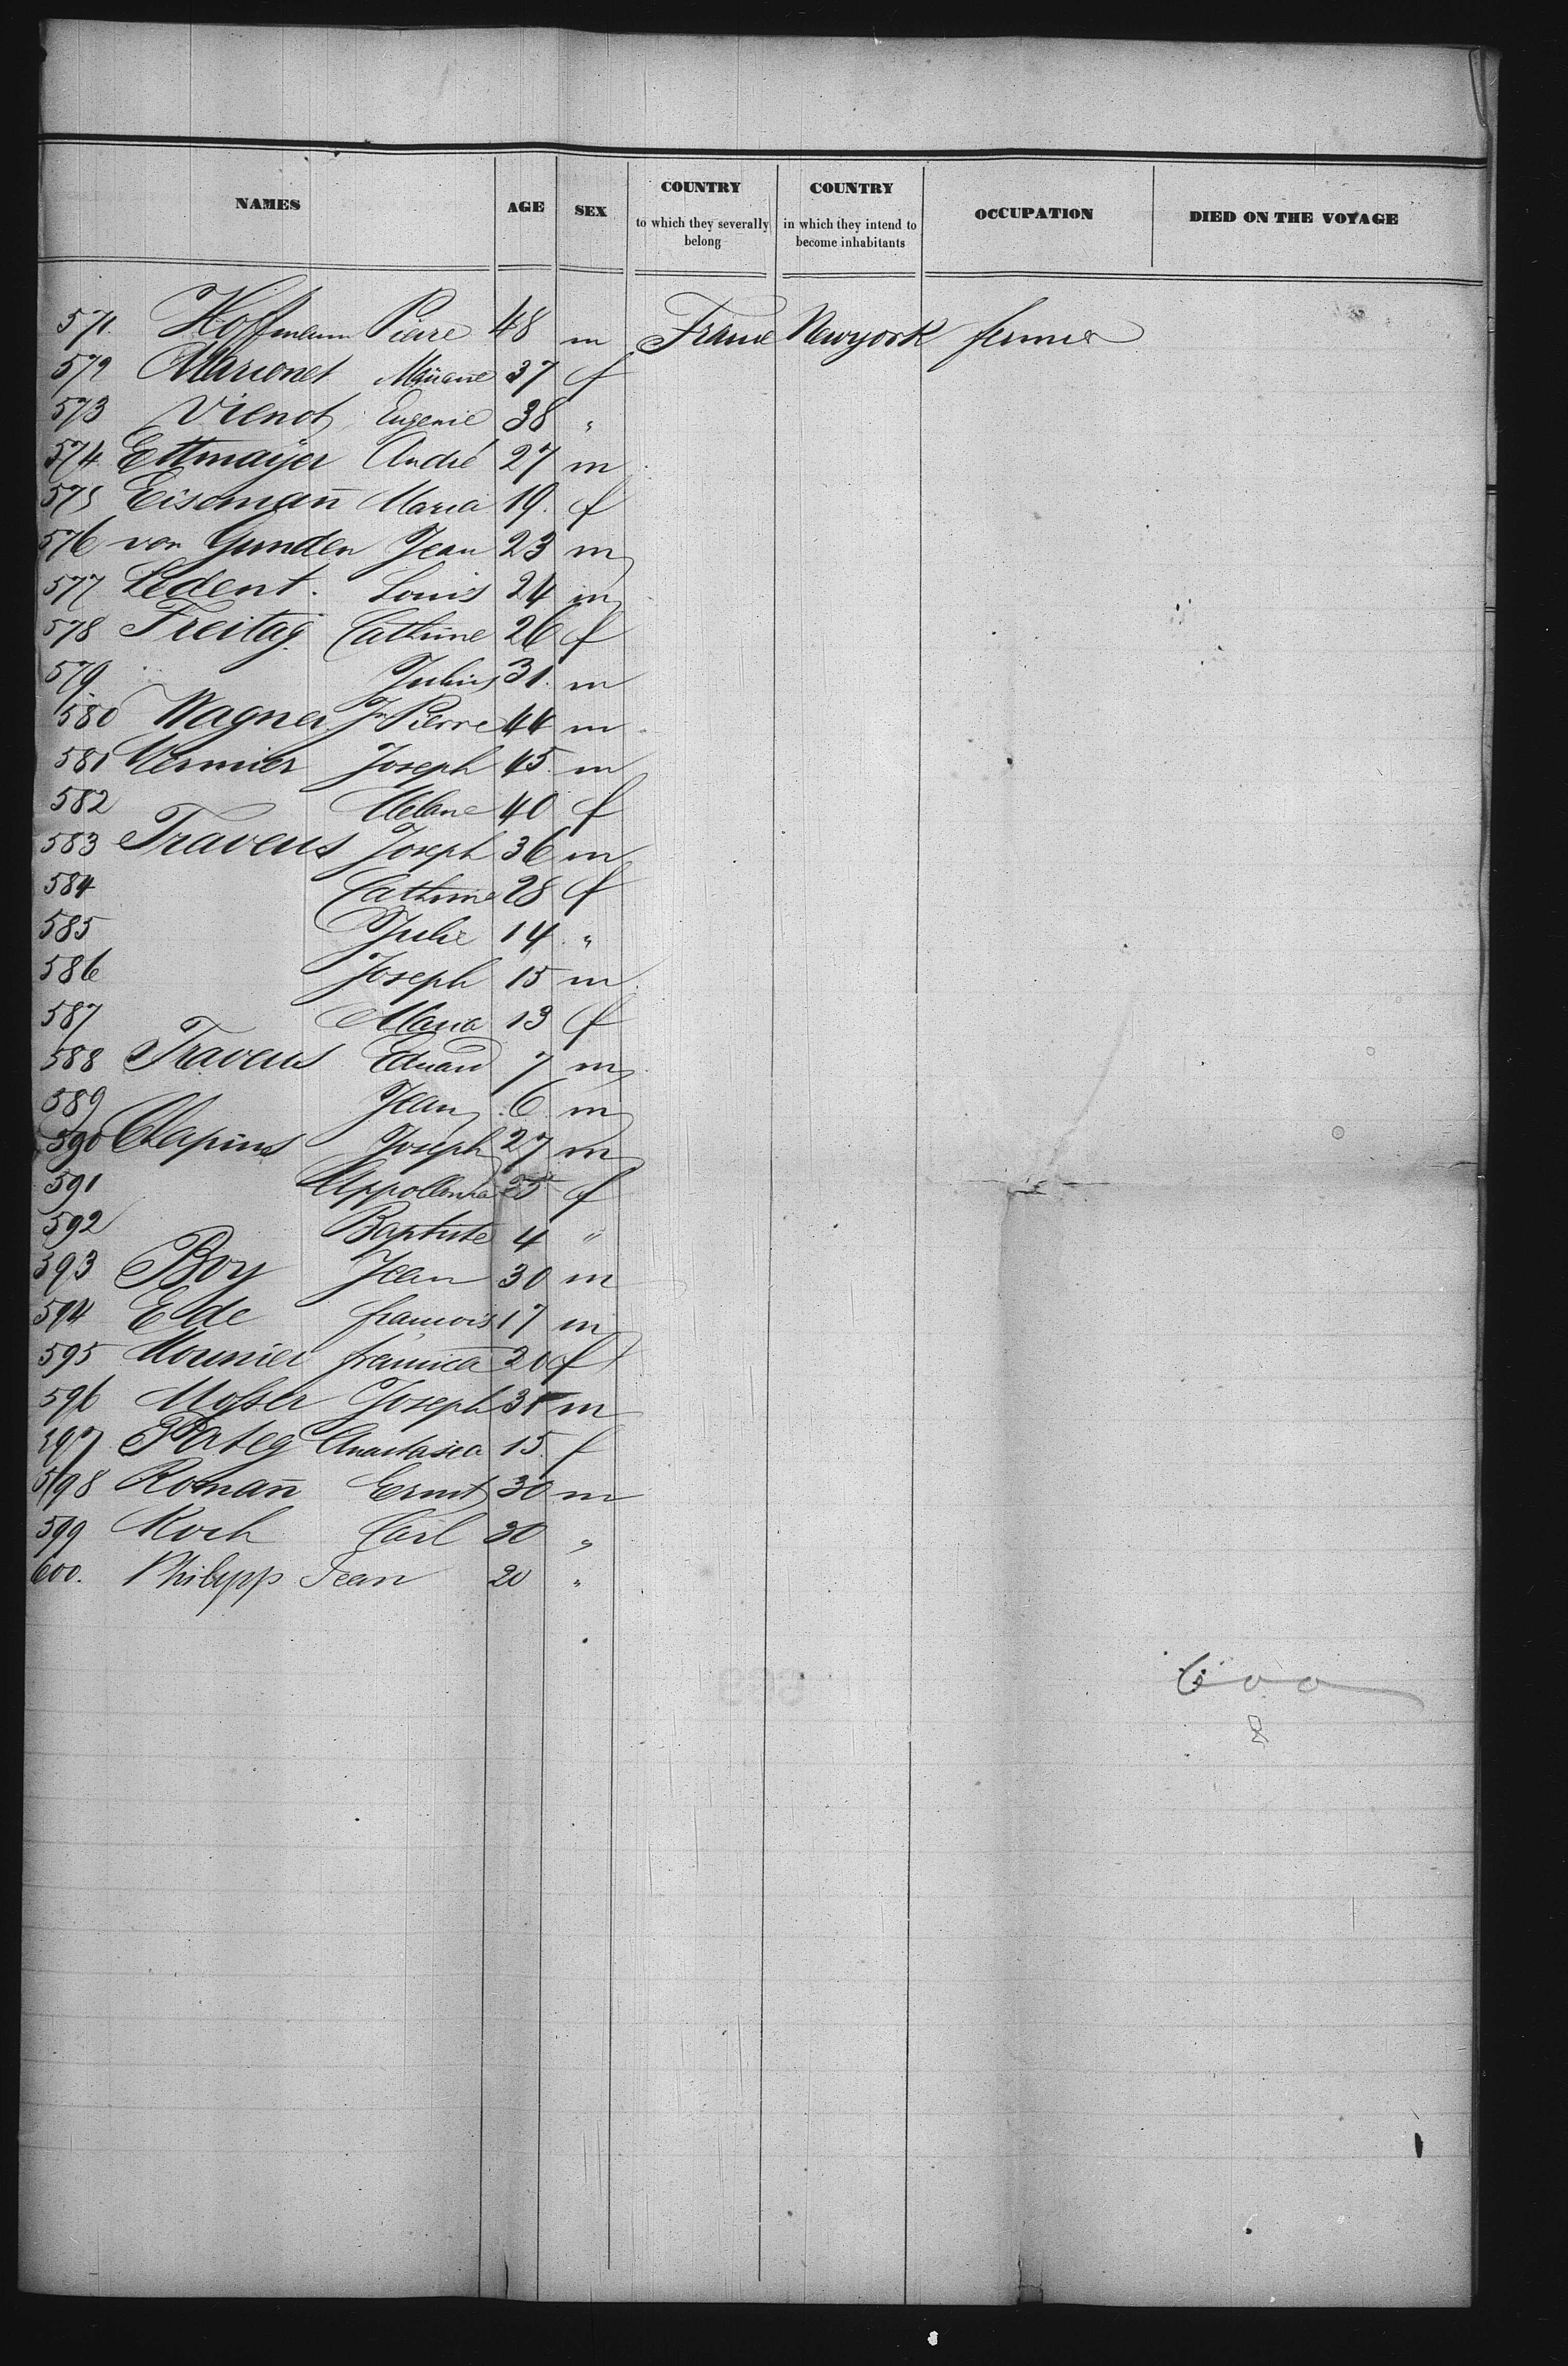 NAMES AGE SEX COUNTRY to which they severally belong COUNTRY in which they intend to become inhabitants OCCUPATION DIED ON THE VOYAGE
571. Hoffmann Pierre 48 m France Newyork farmer
572 Marionet 37 f
573 Vienot Eugenie 38 "
574 Ettmayer André 27 m
575 Eisoman̄ Maria 19. f
576 von Gunden Jean 23 m
577 Ledent. Louis 24 m
578 Freitag Cathrine 26 f
579 Julius 31. m
580 Wagner Jn Pierre 44 m
581 Joseph 45 m
582 40 f
583 Travens Joseph 36 m
584 Cathrine 28 f
585 Julie 14 "
586 Joseph 15 m
587 Maria 13 f
588 Travens Eduard 7 m
589 Jean 6 m
590 Joseph 27 m
591 Appollonia f
592 Baptiste 4 "
593 Boy Jean 30 m
594 Elde francois 17 m
595 Mounier 20 f
596 Joseph 31 m
597 Anastasia 15 f
598 Roman̄ Ernst 30 m
599 Koch Carl 30 "
600. Philipp Jean 20 "
600